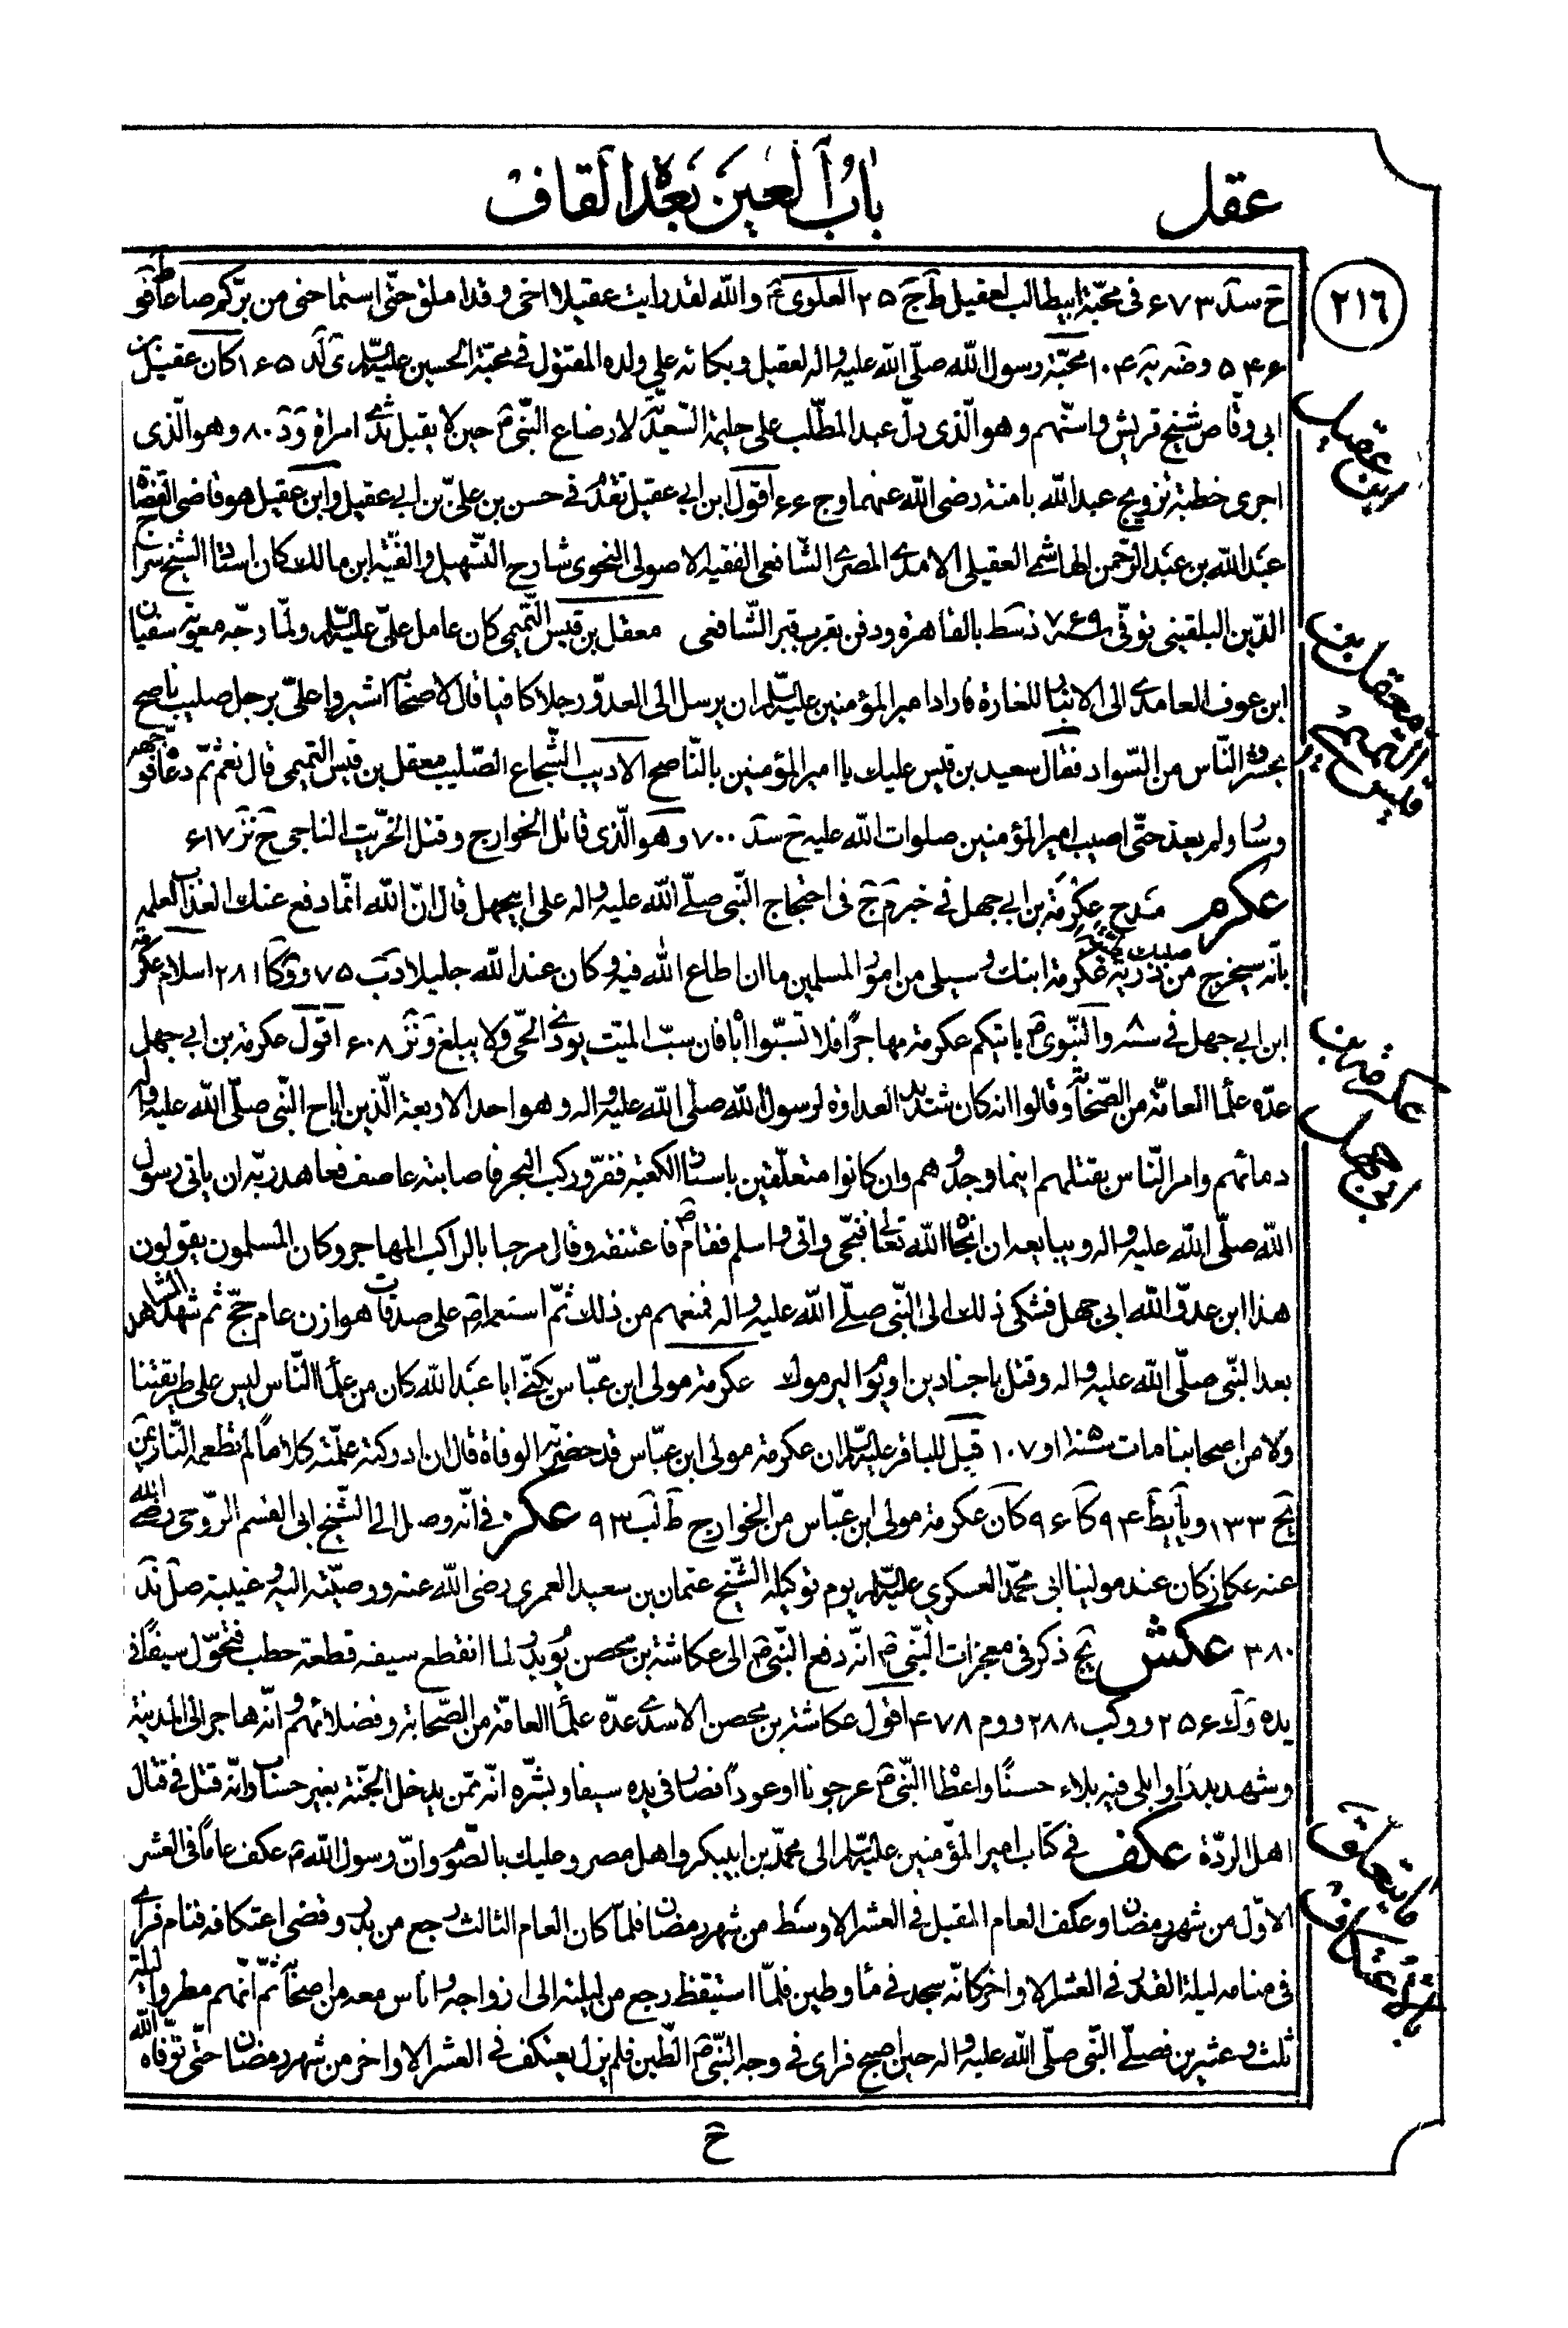 عقل
باب العين بعد القاف
٢١٦
ح سد ۶۷۳ في محبّة ابيطالب لعقيل ط ج ۲۵ العلوي ع والله لقد رايت عقيلا اخي وقد املق حتّى استماحني من برّكم صاعا
۵۴۶ محبّة رسول الله صلّى الله عليه واله لعقيل وبكائه على ولده المقتول في محبّة الحسين عليه السّلم ى لد ۱۶۵ كان عقيل بن
ابي وقّاص شيخ قريش واسنّهم وهو الّذي دلّ عبد المطّلب على حليمة السّعديّة لارضاع النّبيّ ص حين لا يقبل ثدي امراة و د ۸۰ وهو الّذي
اجرى خطبة تزويج عبد الله بامنة رضي الله عنهما و ج ۶۶ اقول ابن ابي عقيل تقدّم في حسن بن عليّ بن ابي عقيل وابن عقيل هو قاضي القضاة
عبد الله بن عبد الرّحمن الهاشمي العقيلي الامدي المصري الشّافعي الفقيه الاصولي النّحوي شارح التّسهيل والفيّة ابن مالك كان استاد الشّيخ سراج
الدّين البلقيني توفّي سنة ۷۶۹ ذسط بالقاهرة ودفن بقرب قبر الشّافعي معقل بن قيس التّميمي كان عامل عليّ عليه السّلم ولمّا وجّه معوية سفيان
ابن عوف الغامدي الى الانبار للغارة فاراد امير المؤمنين عليه السّلم ان يرسل الى العدوّ رجلا كافيا قال لاصحابه اشيروا عليّ برجل صليب ناصح
يحشر النّاس من السّواد فقال سعيد بن قيس عليك يا امير المؤمنين بالنّاصح الاديب الشّجاع الصّليب معقل بن قيس التّميمي قال نعم ثمّ دعاه فوجّهه
وسار ولم يعد حتّى اصيب امير المؤمنين صلوات الله عليه ح سد ۷۰۰ وهو الّذي قاتل الخوارج وقتل الخرّيت الناجي ح نز ۶۱۷
عكرم مدح عكرمة بن ابي جهل في خبر م ج في احتجاج النّبي صلّى الله عليه واله على ابيجهل قال انّ الله انّما دفع عنك العذاب لعلمه
بانّه سيخرج من صلبك ذرّيّة طيّبة عكرمة ابنك وسيلي من امور المسلمين ما ان اطاع الله فيه وكان عند الله جليلا د ب ۷۵ و و كا ۲۸۱ اسلام عكرمة
ابن ابي جهل في سنة ۸ و النّبوي ص ياتيكم عكرمة مهاجرًا فلا تسبّوا اباه فان سبّ الميّت يوذي الحيّ ولا يبلغ و نز ۶۰۸ اقول عكرمة بن ابي جهل
عدّه علماء العامّة من الصّحابة وقالوا انه كان شديد العداوة لرسول الله صلّى الله عليه واله وهو احد الاربعة الّذين اباح النّبي صلّى الله عليه واله
دمائهم وامر النّاس بقتلهم اينما وجدوهم وان كانوا متعلّقين باستار الكعبة ففرّ وركب البحر فاصابته عاصف فعاهد ربّه ان ياتي رسول
الله صلّى الله عليه واله ويبايعه ان انجاه الله تعالى فنجّي واتى واسلم فقام ص فاعتنقه وقال مرحبا بالراكب المهاجر وكان المسلمون يقولون
هذا ابن عدوّ الله ابي جهل فشكى ذلك الى النّبي صلّى الله عليه واله فمنعهم من ذلك ثمّ استعمله ص على صدقات هوازن عام حجّ ثم شهد المشاهد
بعد النّبي صلّى الله عليه واله وقتل باجنادين او يوم اليرموك عكرمة مولى ابن عبّاس يكنّى ابا عبد الله كان من علماء النّاس ليس على طريقتنا
ولا من اصحابنا مات سنة ۱۰۵ او ۱۰۷ قيل للباقر عليه السّلم ان عكرمة مولى ابن عبّاس قد حضرته الوفاة قال ان ادركته علّمته كلاما لم تطعمه النّار
يج ۱۳۳ و يا يط ۹۴ كا ۹۶ كان عكرمة مولى ابن عبّاس من الخوارج ط لب ۹۳ عكز في انّه وصل الى الشّيخ ابي القسم الرّوحي رضي الله
عنه عكاز كان عند مولينا ابي محمّد العسكري عليه السّلم يوم توكيله الشّيخ عثمان بن سعيد العمري رضي الله عنه ووصيّته اليه وغيبته
۳۸۰ عكش يج ذكر في معجزات النّبيّ ص انّه دفع النّبيّ ص الى عكاشة بن محصن يوم بدر لما انقطع سيفه قطعة حطب فتحوّل سيفًا في
يده و ك ۲۵۶ و و كب ۲۸۸ و و م ۴۷۸ اقول عكاشة بن محصن الاسدي عدّه علماء العامّة من الصّحابة وفضلائهم وانّه هاجر الى المدينة
وشهد بدرًا وابلى فيه بلاء حسنًا واعطاه النّبيّ ص عرجونا او عودًا فصار في يده سيفا وبشّره انّه ممّن يدخل الجنّة بغير حساب وانّه قتل في قتال
اهل الردّة عكف في كتاب امير المؤمنين عليه السّلم الى محمّد بن ابيبكر واهل مصر وعليك بالصّوم وانّ رسول الله ص عكف عامًا في العشر
الاوّل من شهر رمضان وعكف العام المقبل في العشر الاوسط من شهر رمضان فلمّا كان العام الثالث رجع من بدر وقضى اعتكافه فنام فراى
في منامه ليلة القدر في العشر الاواخر كانّه سجد في ماء وطين فلمّا استيقظ رجع من ليلته الى ازواجه واناس معه من اصحابه ثمّ انّهم مطروا ليلة
ثلث وعشرين فصلّى النّبي صلّى الله عليه واله حين اصبح فراى في وجه النّبيّ ص الطّين فلم يزل يعتكف في العشر الاواخر من شهر رمضان حتّى توفّاه الله
ابن عقيل
معقل بن قيس التميمي
عكرمة بن ابي جهل
ما يتعلّق بالاعتكاف
ح